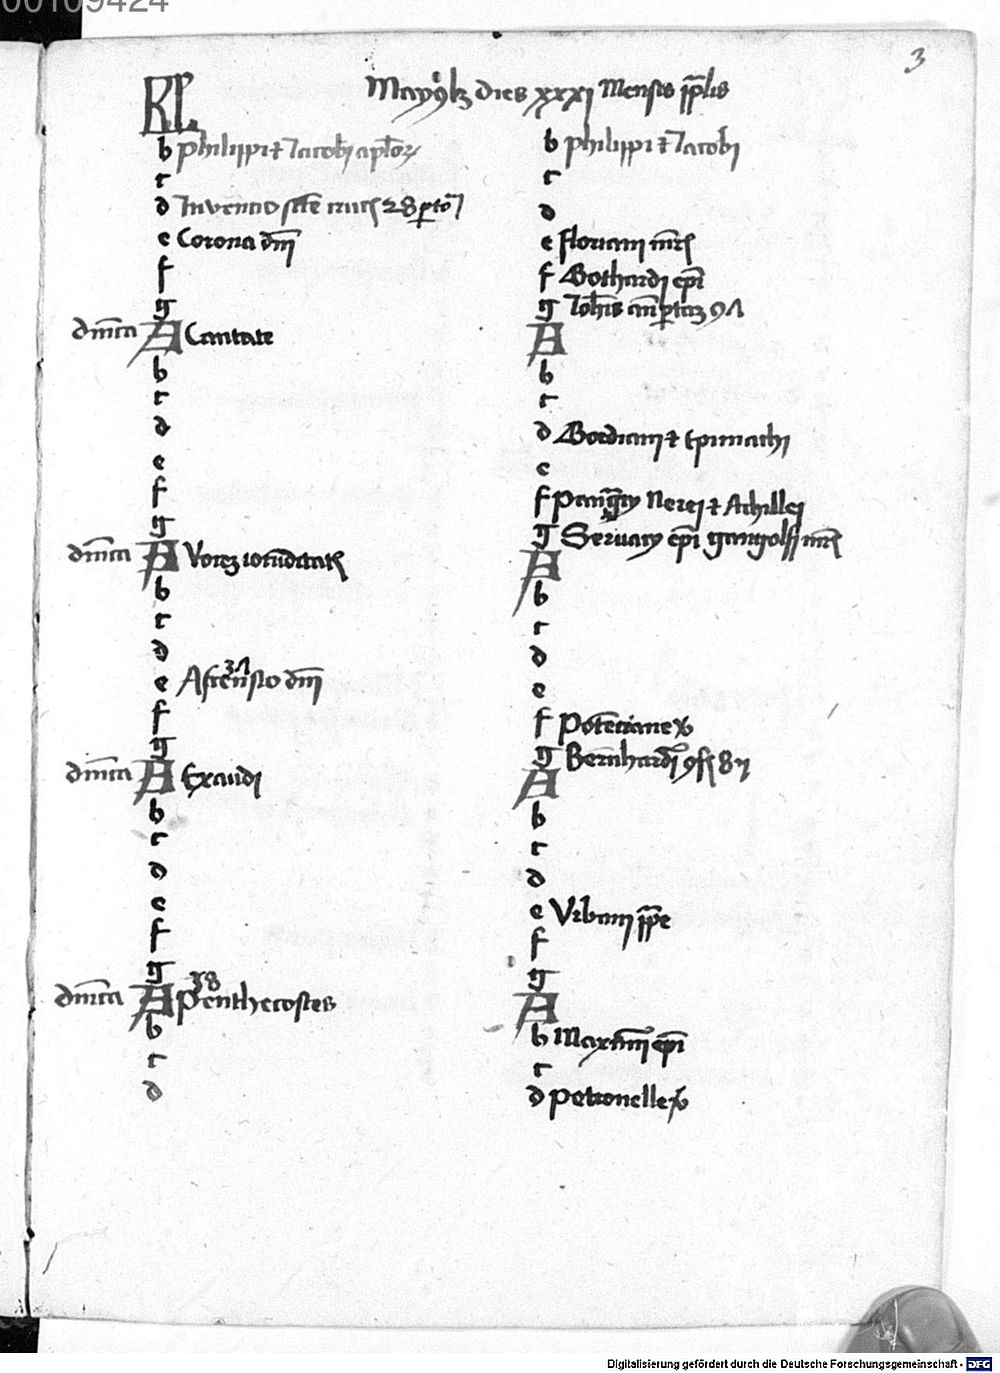 00109424
3
KL Mayus hz dies xxxi Mensis
b Philippi et Jacobi aplorum
c
d Inventio scte crucis 28
e Corona dni
f
g
dnica A Cantate
b
c
d
e
f
g
dnica A Vocem iocunditatis
b
c
d
e Ascensio dni 31
f
g
dnica A Exaudi
b
c
d
e
f
g
dnica A Penthecostes 38
b
c
d
b Philippi et Jacobi
c
d
e Floriani mris
f Gothardi epi
g Johis an portam
A
b
c
d Gordiani et Epimachi
e
f Pangcy Nerei et Achillei
g Servacy epi gangolfi mris
A
b
c
d
e
f Potenciane v
g Bernhardi
A
b
c
d
e Urbani ppe
f
g
A
b Maximi epi
c
d Petronelle v
Digitalisierung gefördert durch die Deutsche Forschungsgemeinschaft - DFG